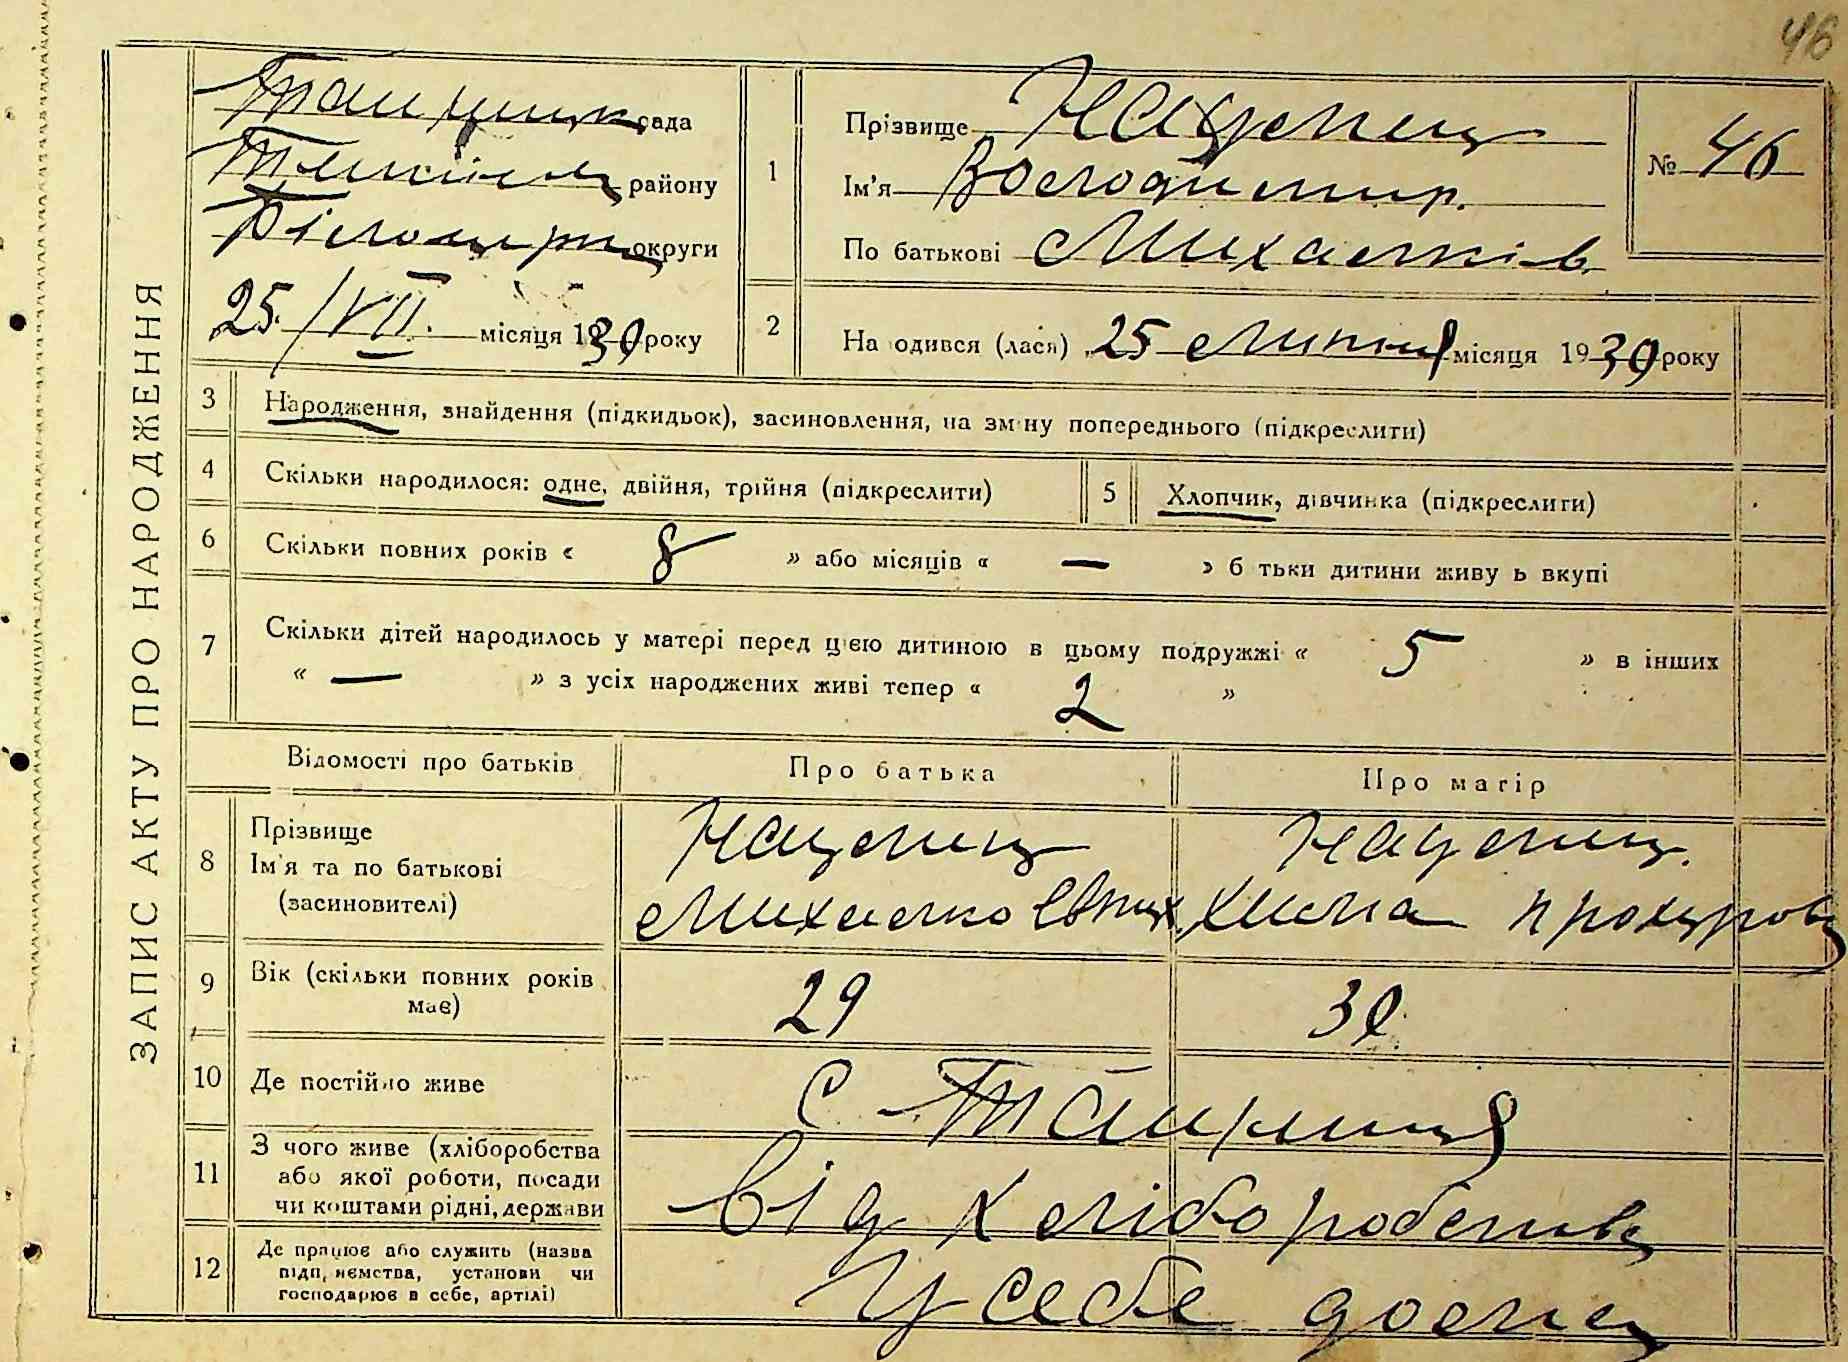 46
ЗАПИС АКТУ ПРО НАРОДЖЕННЯ
рада
району
округи
25/VII місяця 1930 року
1
Прізвище
Ім'я Володимир.
По батькові Михайлків
№ 46
2
На одився (лася) 25 Липня місяця 1930 року
3 Народження, знайдення (підкидьок), засиновлення, на зм ну попереднього (підкреслити)
4 Скільки народилося: одне, двійня, трійня (підкреслити)
5 Хлопчик, дівчинка (підкреслити)
6 Скільки повних років « 8 » або місяців « — » б тьки дитини живу ь вкупі
7 Скільки дітей народилось у матері перед цією дитиною в цьому подружжі « 5 » в інших
« — » з усіх народжених живі тепер « 2 »
Відомості про батьків Про батька Про матір
8 Прізвище
Ім'я та по батькові
(засиновителі)
9 Вік (скільки повних років має) 29 30
10 Де постійно живе с
11 З чого живе (хліборобства або якої роботи, посади чи коштами рідні, держави Від хліборобства
12 Де працює або служить (назва підп иємства, установи чи господарює в себе, артілі) У себе дома